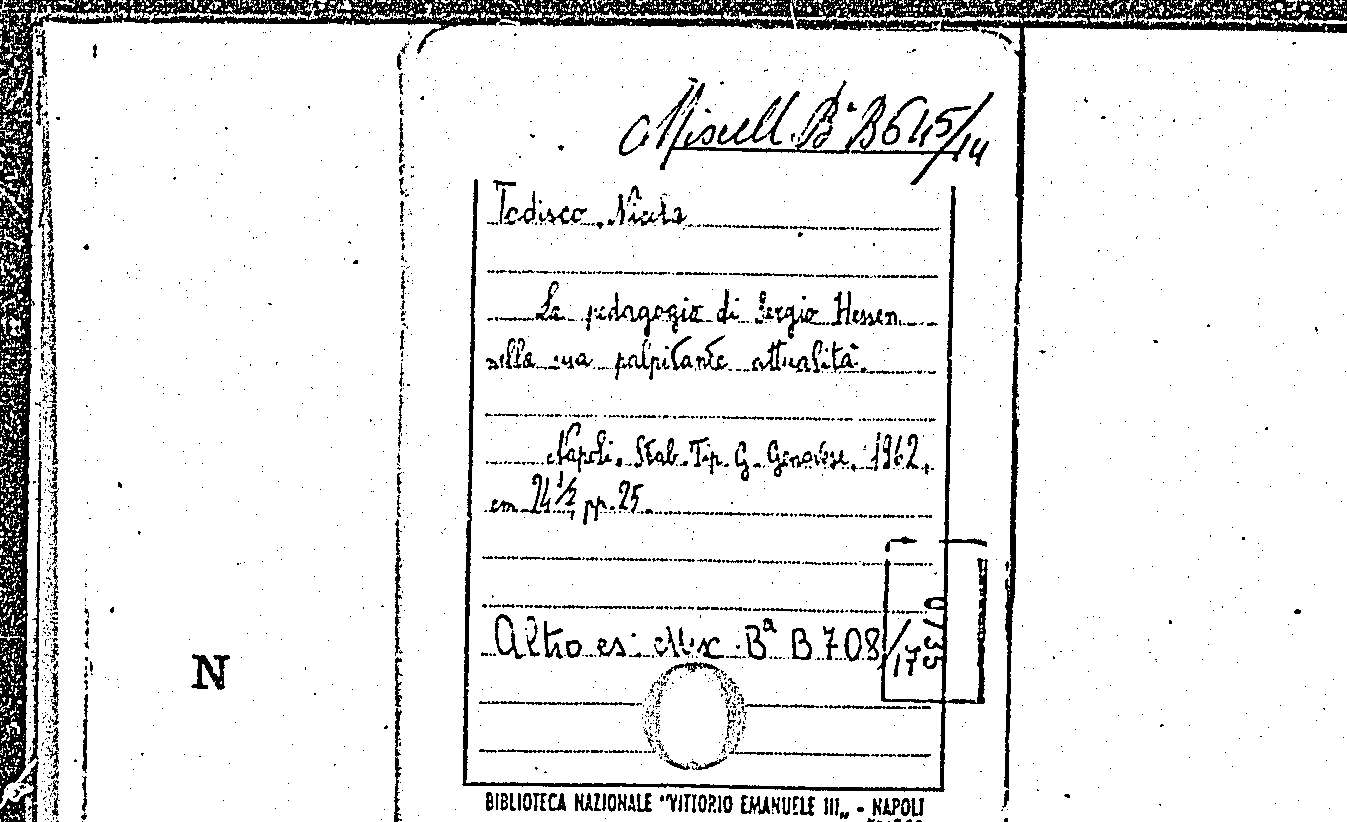 Miscell. Bª B645/14
Todisco, Nicola
La pedagogia di Sergio Hessen
nella sua palpitante attualità.
Napoli, Stab. Tip. G. Genovese, 1962,
cm 24 1/2, pp. 25.
0/35
Altro es: Misc. Bª B 708/17
N
BIBLIOTECA NAZIONALE "VITTORIO EMANUELE III„ - NAPOLI